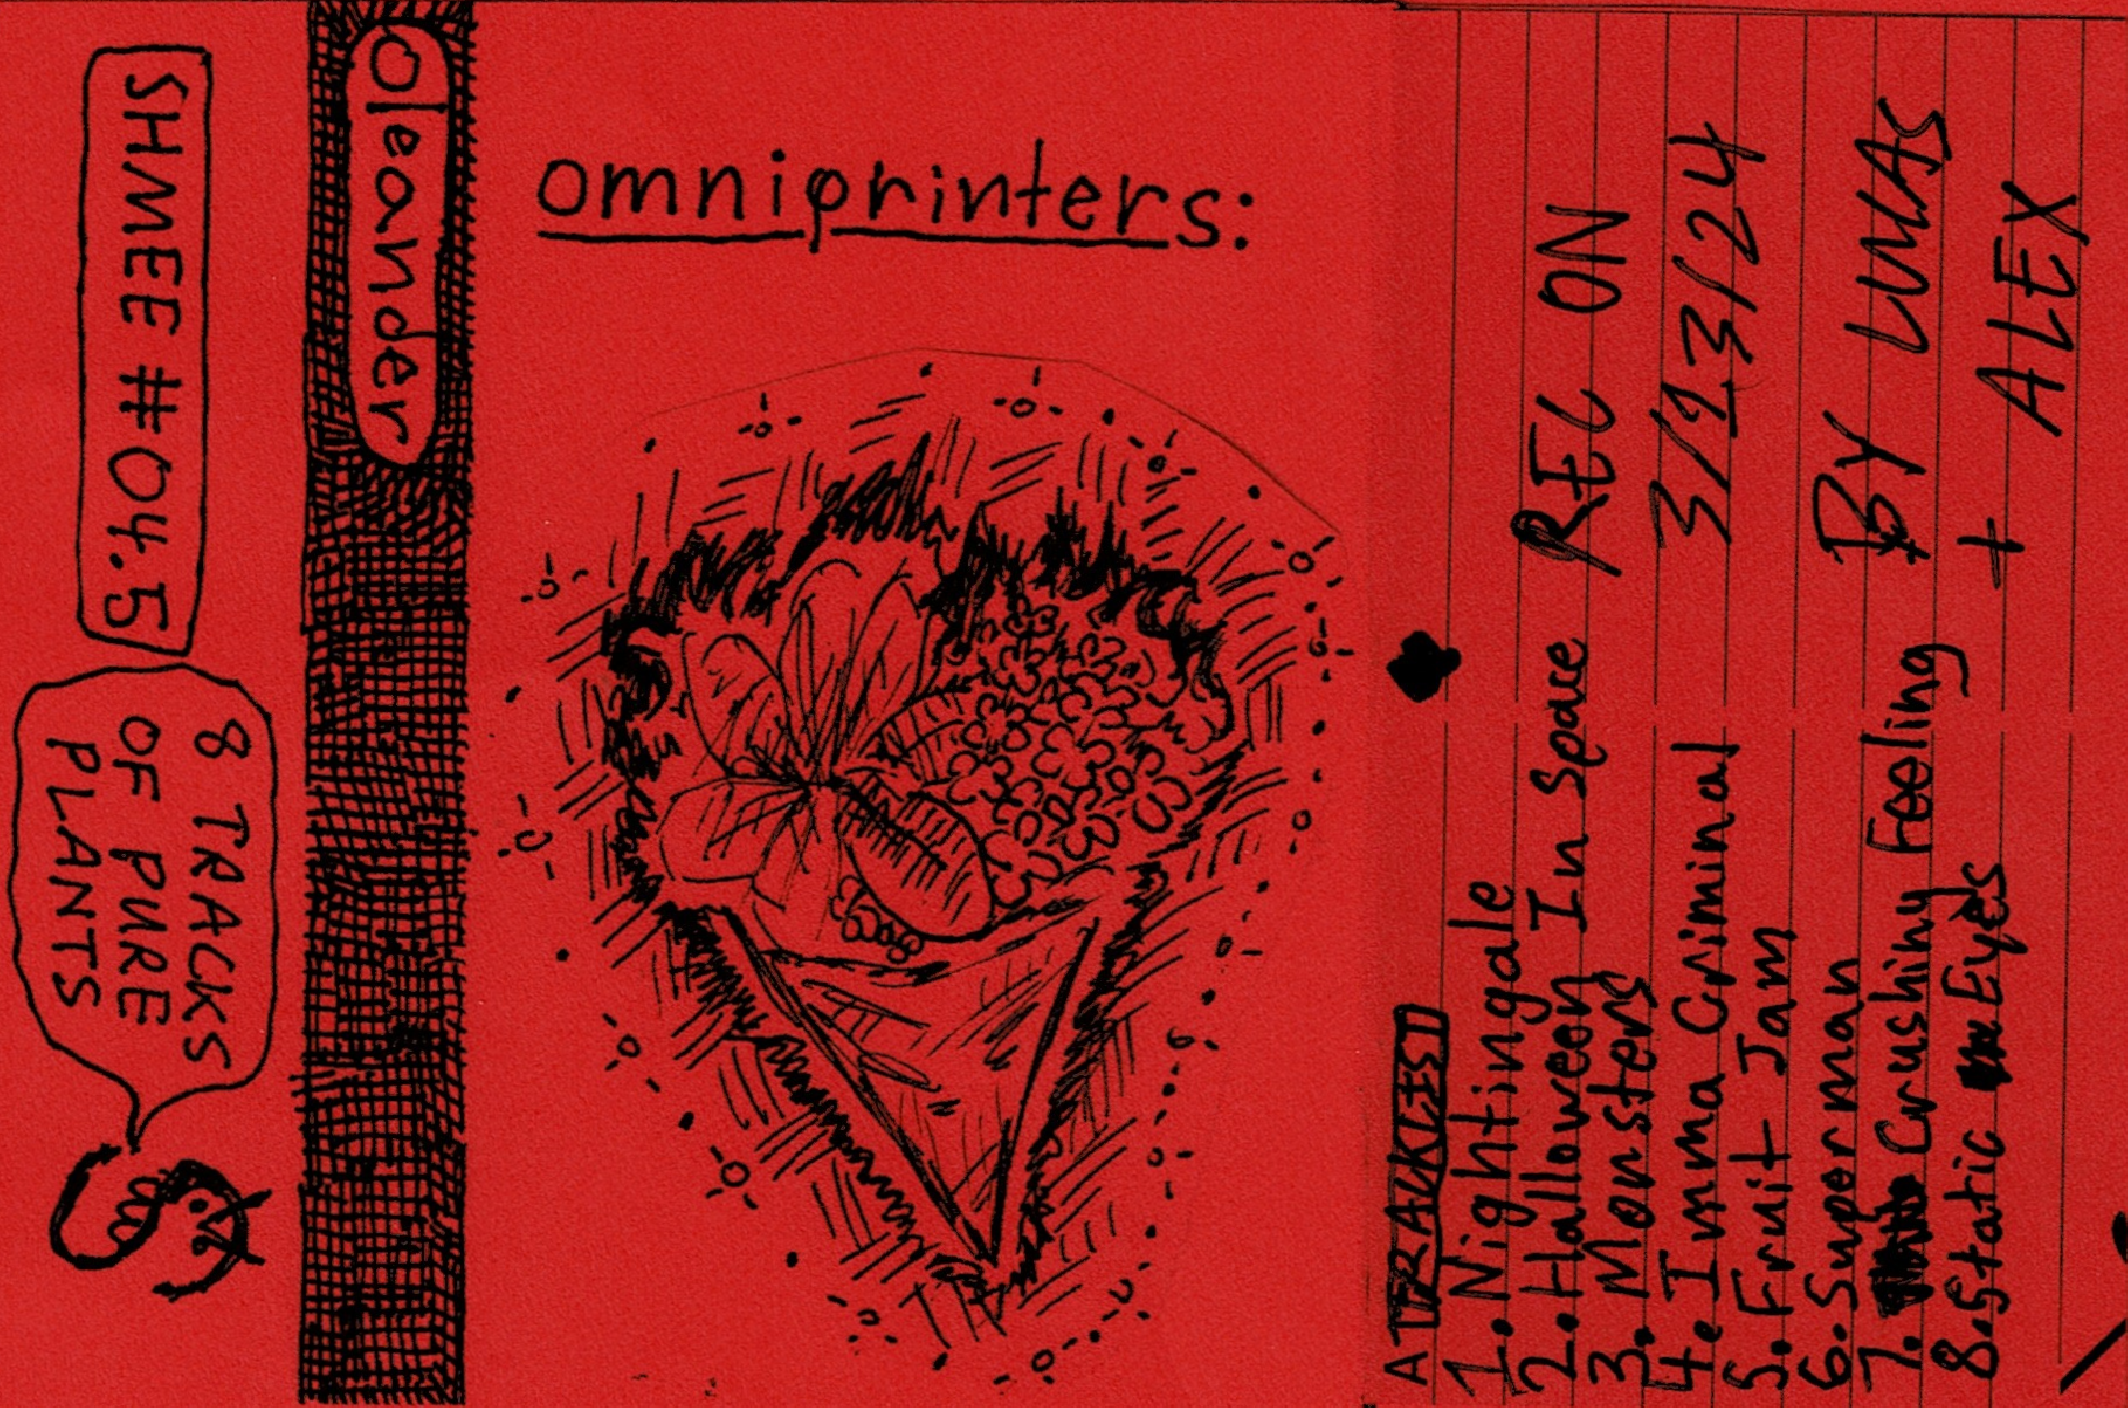 SHMEE #04.5
8 TRACKS
OF PURE
PLANTS
oleander
omniprinters:
REC ON
3/13/24
BY LUCAS
+ ALEX
1. Nightingale
2. Halloween In Space
3. Monsters
4. Imma Criminal
5. Fruit Jam
6. Superman
7. Crushing Feeling
8. Static Eyes